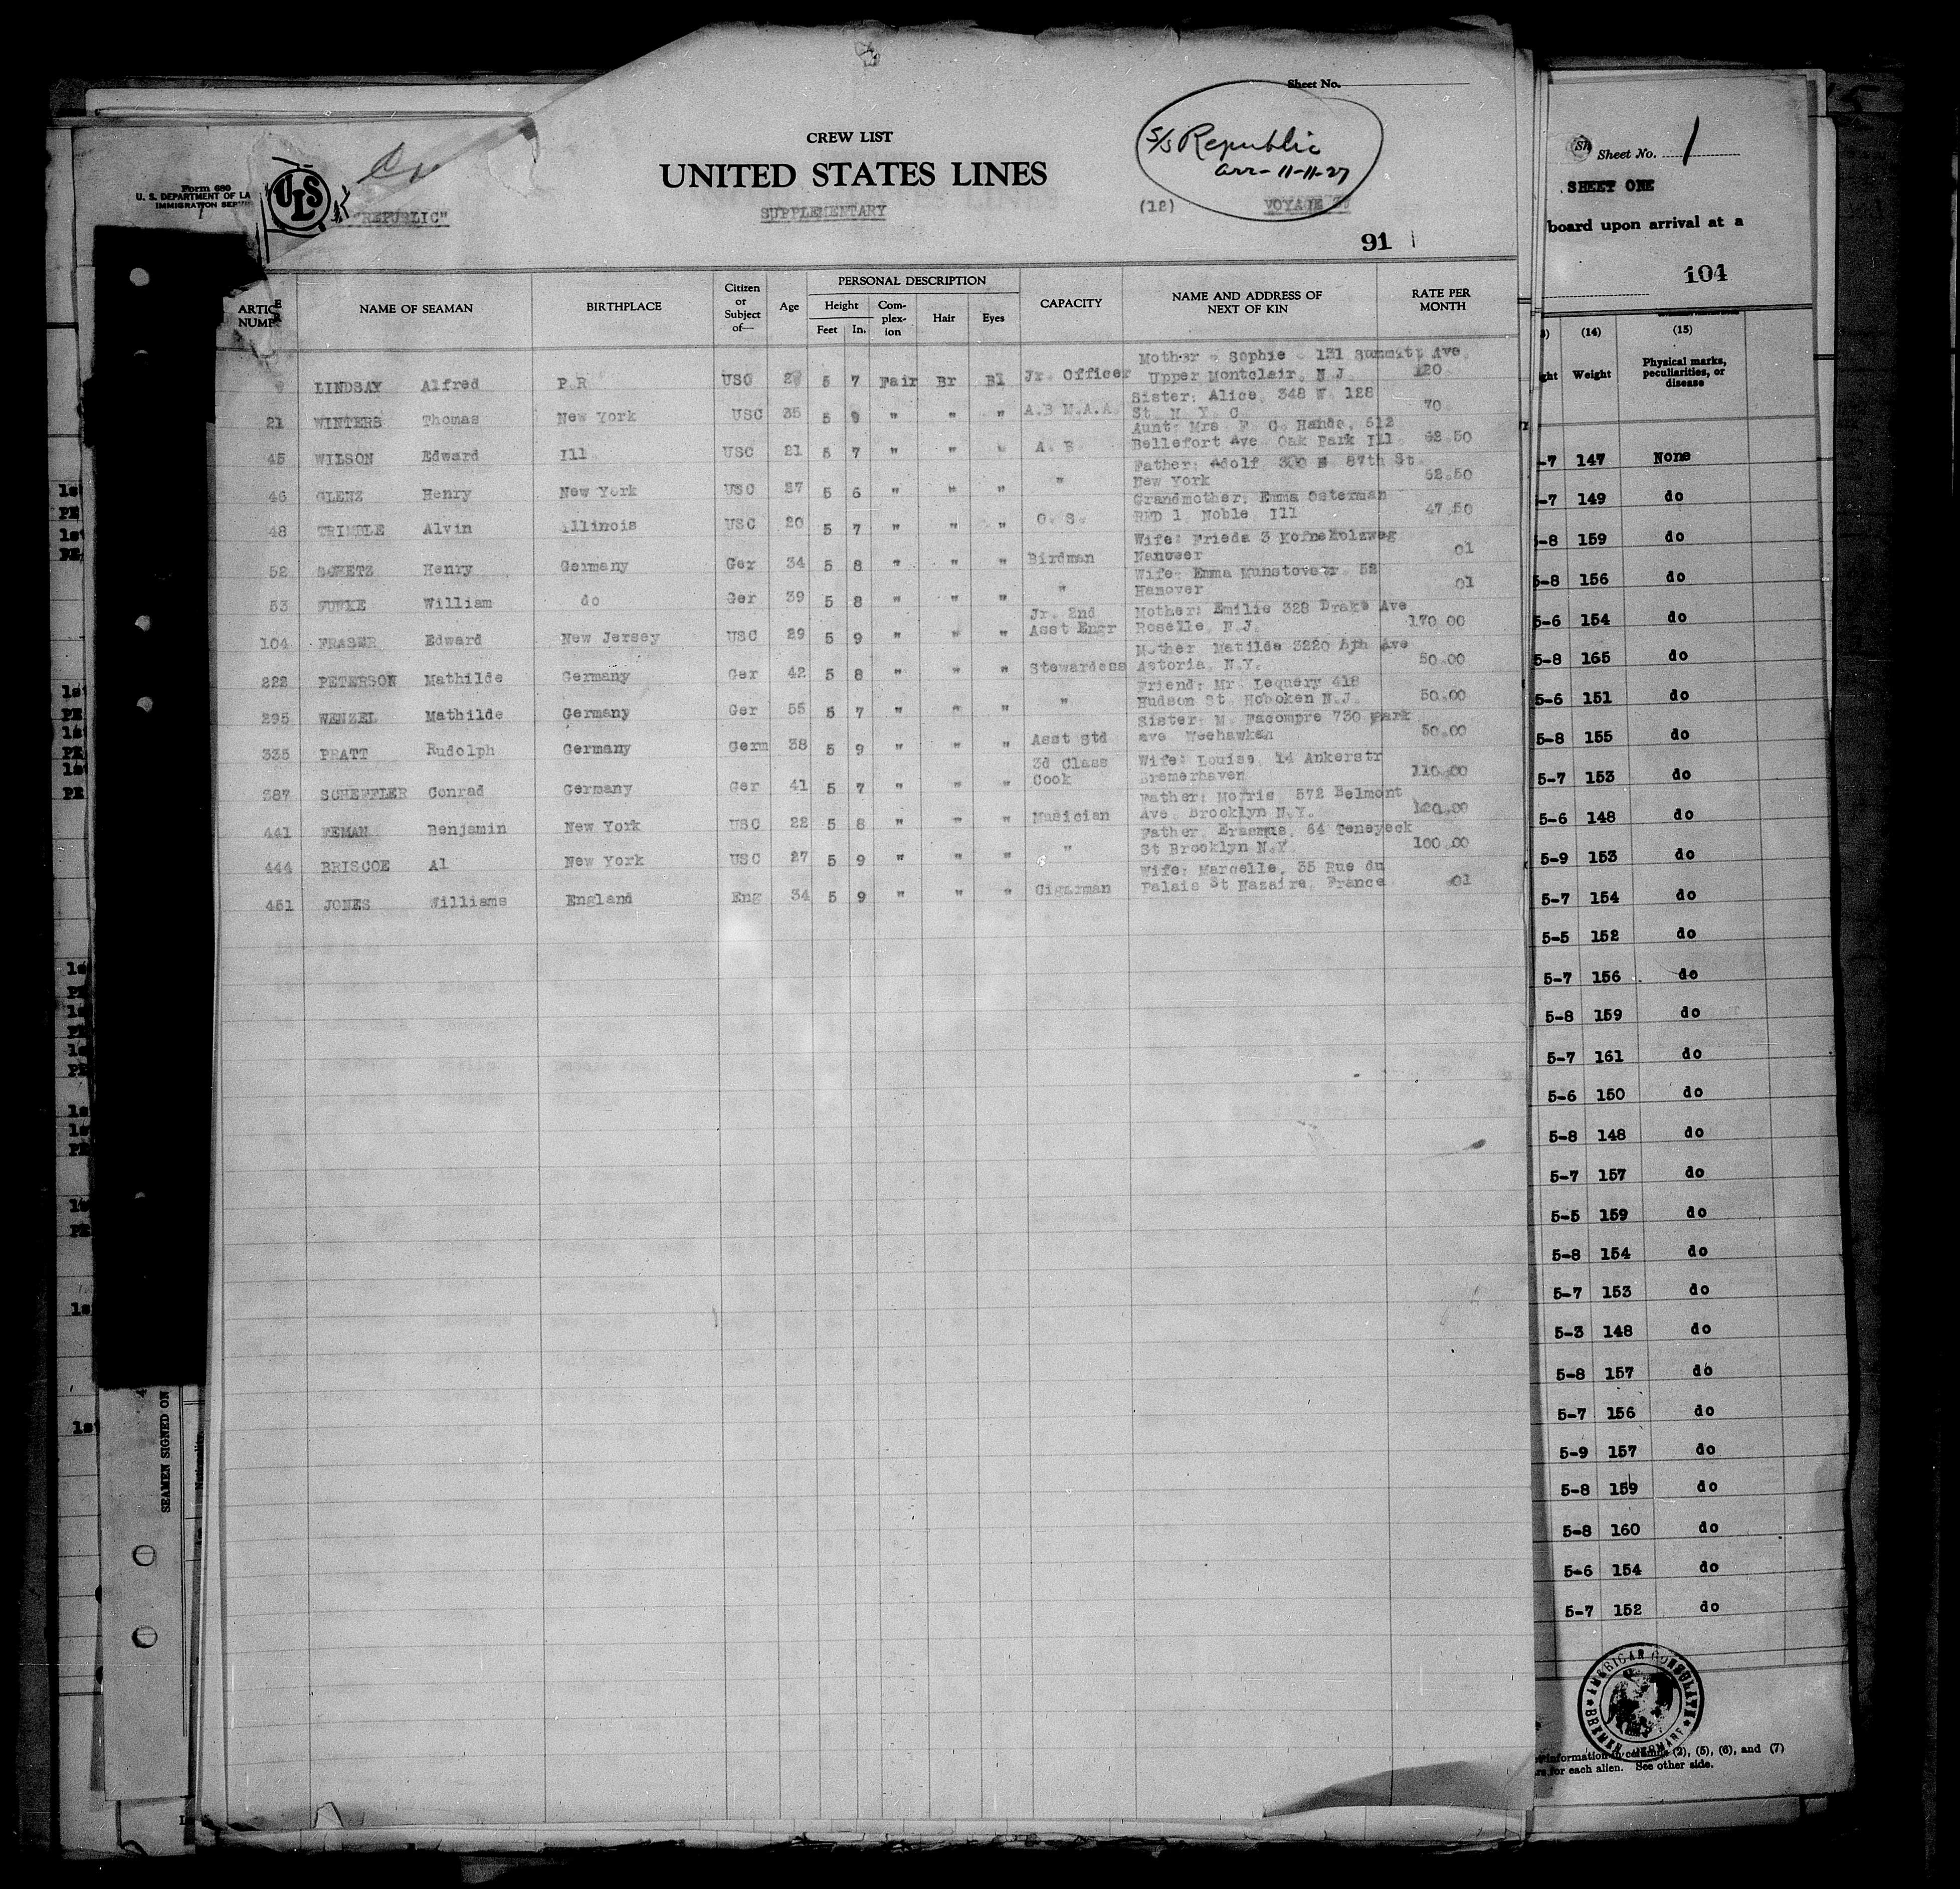 Sheet No.
CREW LIST
UNITED STATES LINES
S/S Republic
arr- 11-11-27
Form 680
U. S. DEPARTMENT OF LA
IMMIGRATION SERV
ULS
"REPUBLIC"
SUPPLEMENTARY
(12)
VOYAGE
91
ARTIC
NUMB
NAME OF SEAMAN
BIRTHPLACE
Citizen or Subject of—
Age
PERSONAL DESCRIPTION
Height
Feet In.
Com-plex-ion
Hair
Eyes
CAPACITY
NAME AND ADDRESS OF NEXT OF KIN
RATE PER MONTH
LINDSAY Alfred P.R USC 5 7 Fair Br Bl Jr. Officer Mother Sophie 131 Summit Ave
Upper Montclair, N.J. 120
21 WINTERS Thomas New York USC 35 5 9 " " " A.B M.A.A. Sister: Alice, 348 W. 128
St N. Y. C. 70
45 WILSON Edward Ill. USC 21 5 7 " " " A. B. Aunt: Mrs F. C. 512
Bellefort Ave Oak Park Ill 62.50
46 GLENZ Henry New York USC 27 5 6 " " " " Father: Adolf 300 E 87th St.
New York 62.50
48 Alvin Illinois USC 20 5 7 " " " O. S. Grandmother, Emma Osterman
RFD 1, Noble Ill 47.50
52 Henry Germany Ger 34 5 8 " " " Birdman Wife: Frieda 3
Hanover 01
53 William do Ger 39 5 8 " " " " Wife: Emma 52
Hanover 01
104 FRASER Edward New Jersey USC 29 5 9 " " " Jr. 2nd Asst Engr Mother: Emilie 328 Drake Ave
Roselle, N.J. 170.00
222 PETERSON Mathilde Germany Ger 42 5 8 " " " Stewardess Mother Matilde 3220 5th Ave
Astoria, N.Y. 50.00
295 WENZEL Mathilde Germany Ger 55 5 7 " " " " Friend: Mr. Lequery 418
Hudson St. Hoboken N.J. 50.00
335 PRATT Rudolph Germany Germ 38 5 9 " " " Asst Std Sister: M. Facompre 730 park
ave Weehawken 50.00
387 SCHEFFLER Conrad Germany Ger 41 5 7 " " " 3d Class Cook Wife: Louise, 14 Ankerstr
Bremerhaven 110.00
441 Benjamin New York USC 22 5 8 " " " Musician Father: Morris 572 Belmont
Ave. Brooklyn N.Y.
444 BRISCOE Al New York USC 27 5 9 " " " " Father, Erasmus, 64 Teneyeck
St Brooklyn N.Y. 100.00
451 JONES Williams England Eng 34 5 9 " " " Cigarman Wife: Marcelle, 35 Rue du
Palais St Nazaire, France 01
Sheet No. 1
SHEET ONE
board upon arrival at a
104
(14)
(15)
ght
Weight
Physical marks, peculiarities, or disease
-7 147 None
-7 149 do
-8 159 do
5-8 156 do
5-6 154 do
5-8 165 do
5-6 151 do
5-8 155 do
5-7 153 do
5-6 148 do
5-9 153 do
5-7 154 do
5-5 152 do
5-7 156 do
5-8 159 do
5-7 161 do
5-6 150 do
5-8 148 do
5-7 157 do
5-5 159 do
5-8 154 do
5-7 153 do
5-3 148 do
5-8 157 do
5-7 156 do
5-9 157 do
5-8 159 do
5-8 160 do
5-6 154 do
5-7 152 do
AMERICAN CONSULATE
BREMEN, GERMANY
information in columns (2), (5), (6), and (7)
for each alien. See other side.
SEAMEN SIGNED ON